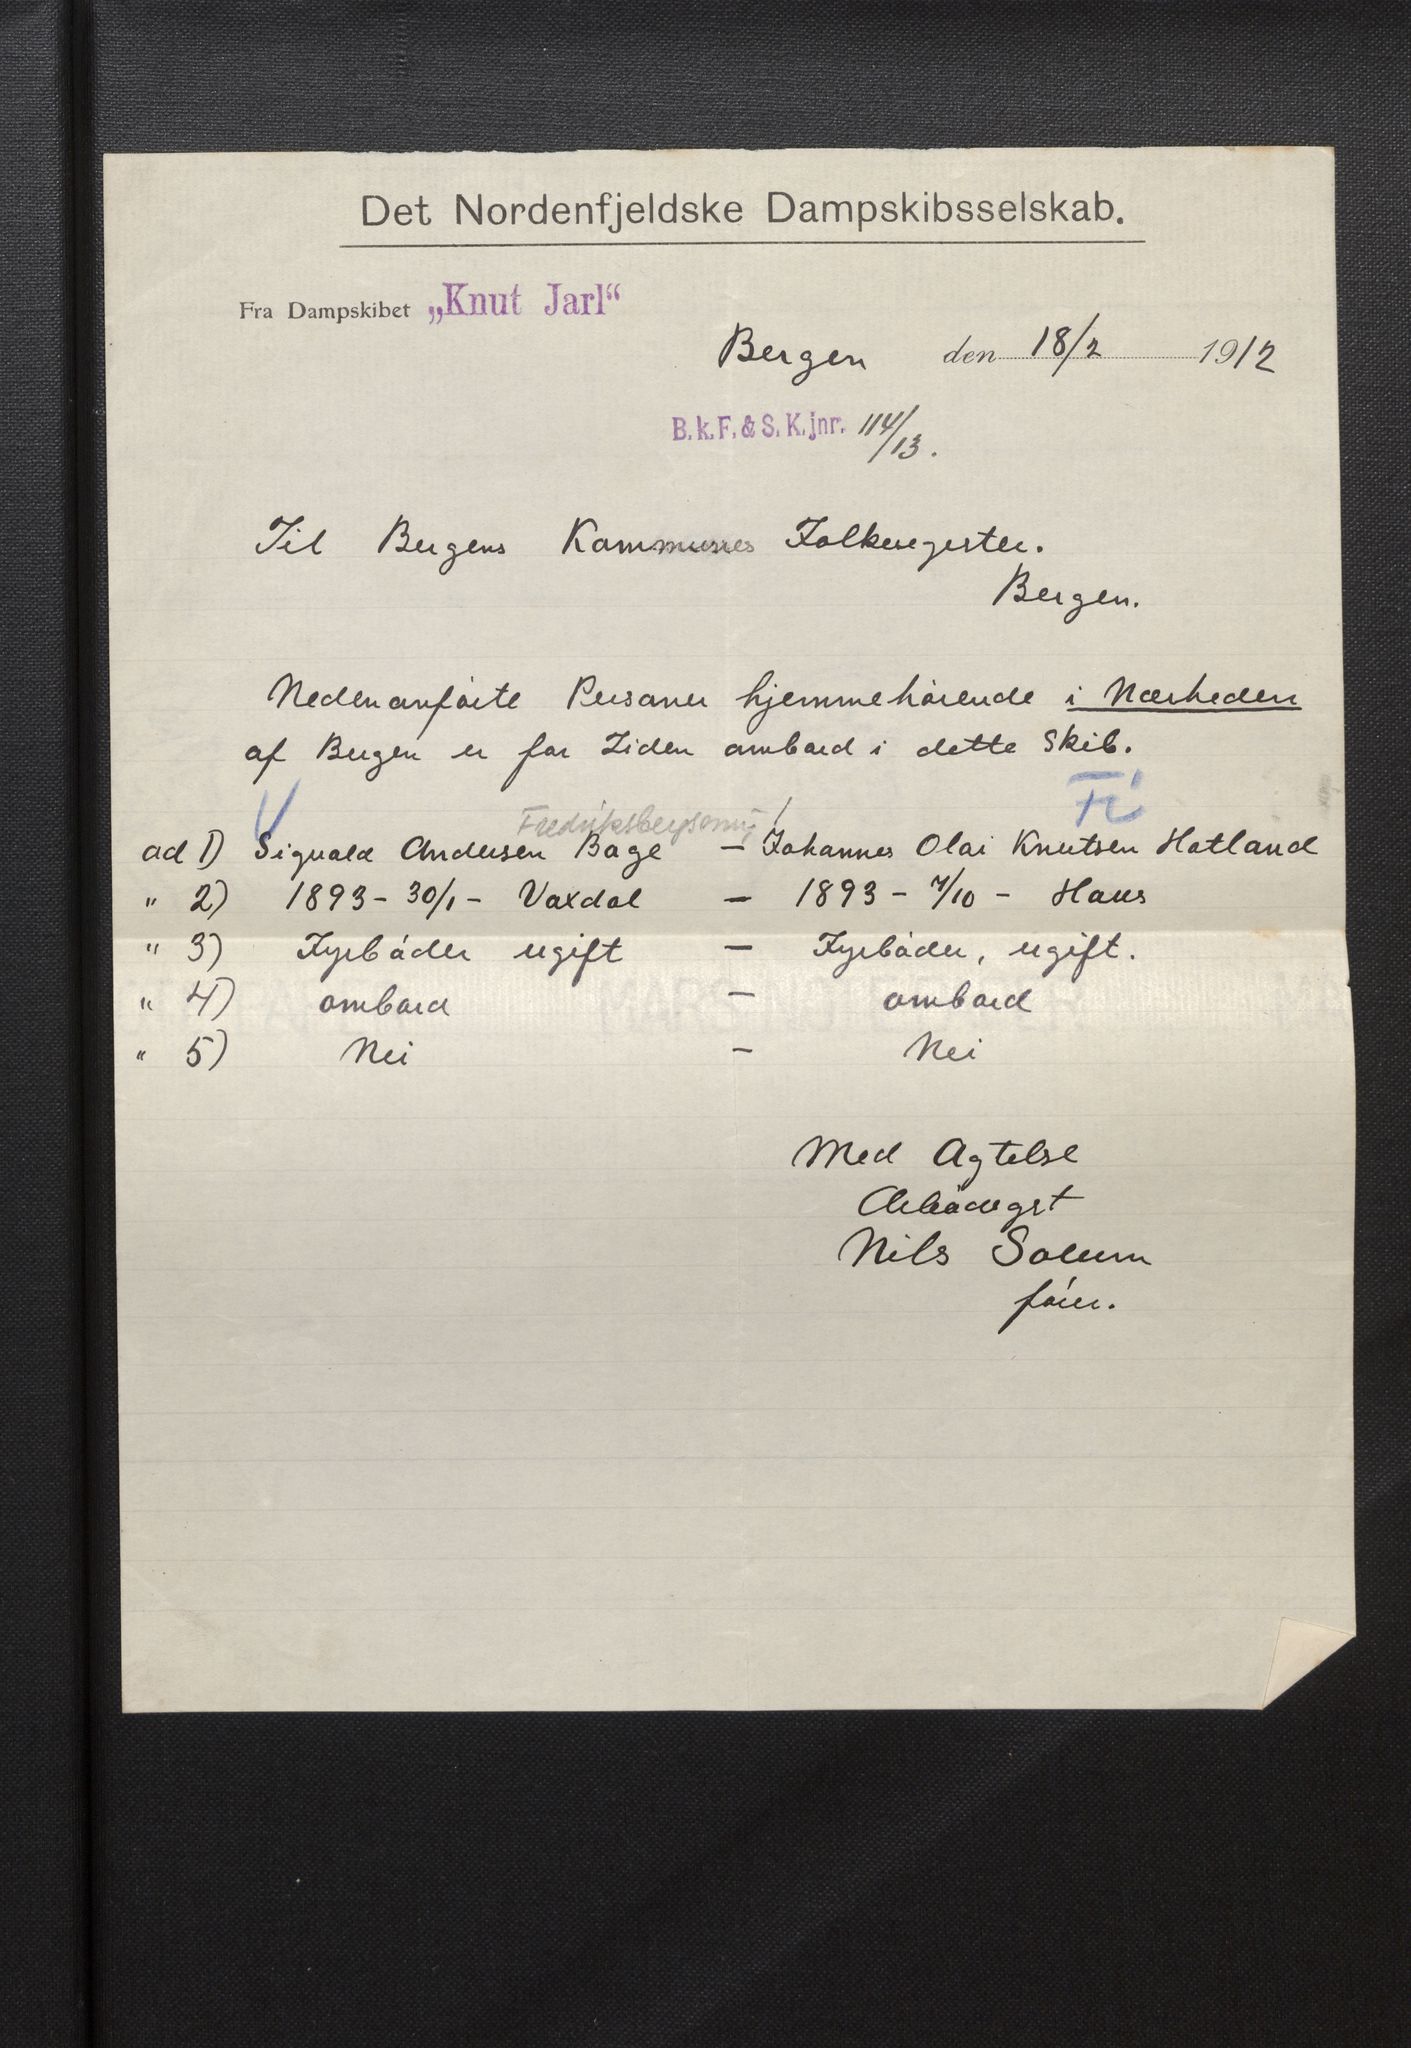 Det Nordenfjeldske Dampskibsselskab.
Fra Dampskibet „Knut Jarl“
Bergen den 18/2 1912
B. k. F. & S. K. jnr. 114/13.
Til Bergens Kommunes Folkeregister.
Bergen.
Nedenanførte Personer hjemmehørende i Nærheden
af Bergen er for Tiden ombord i dette Skib.
V Fr
ad 1) Sigvald Andersen Bage — Johannes Olai Knutsen Hatland
" 2) 1893 - 30/1 - Vaxdal — 1893 - 7/10 - Haus
" 3) Fyrbøder ugift — Fyrbøder, ugift.
" 4) ombord — ombord
" 5) Nei — Nei
Med Agtelse
Ærbødigst
Nils Solum
fører.